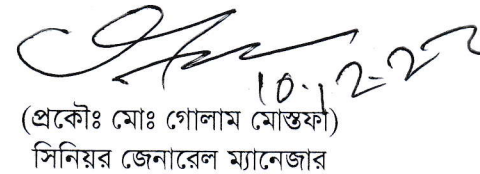 ১০.১২.২২
(প্রকৌঃ মোঃ গোলাম মোস্তফা)
সিনিয়র জেনারেল ম্যানেজার